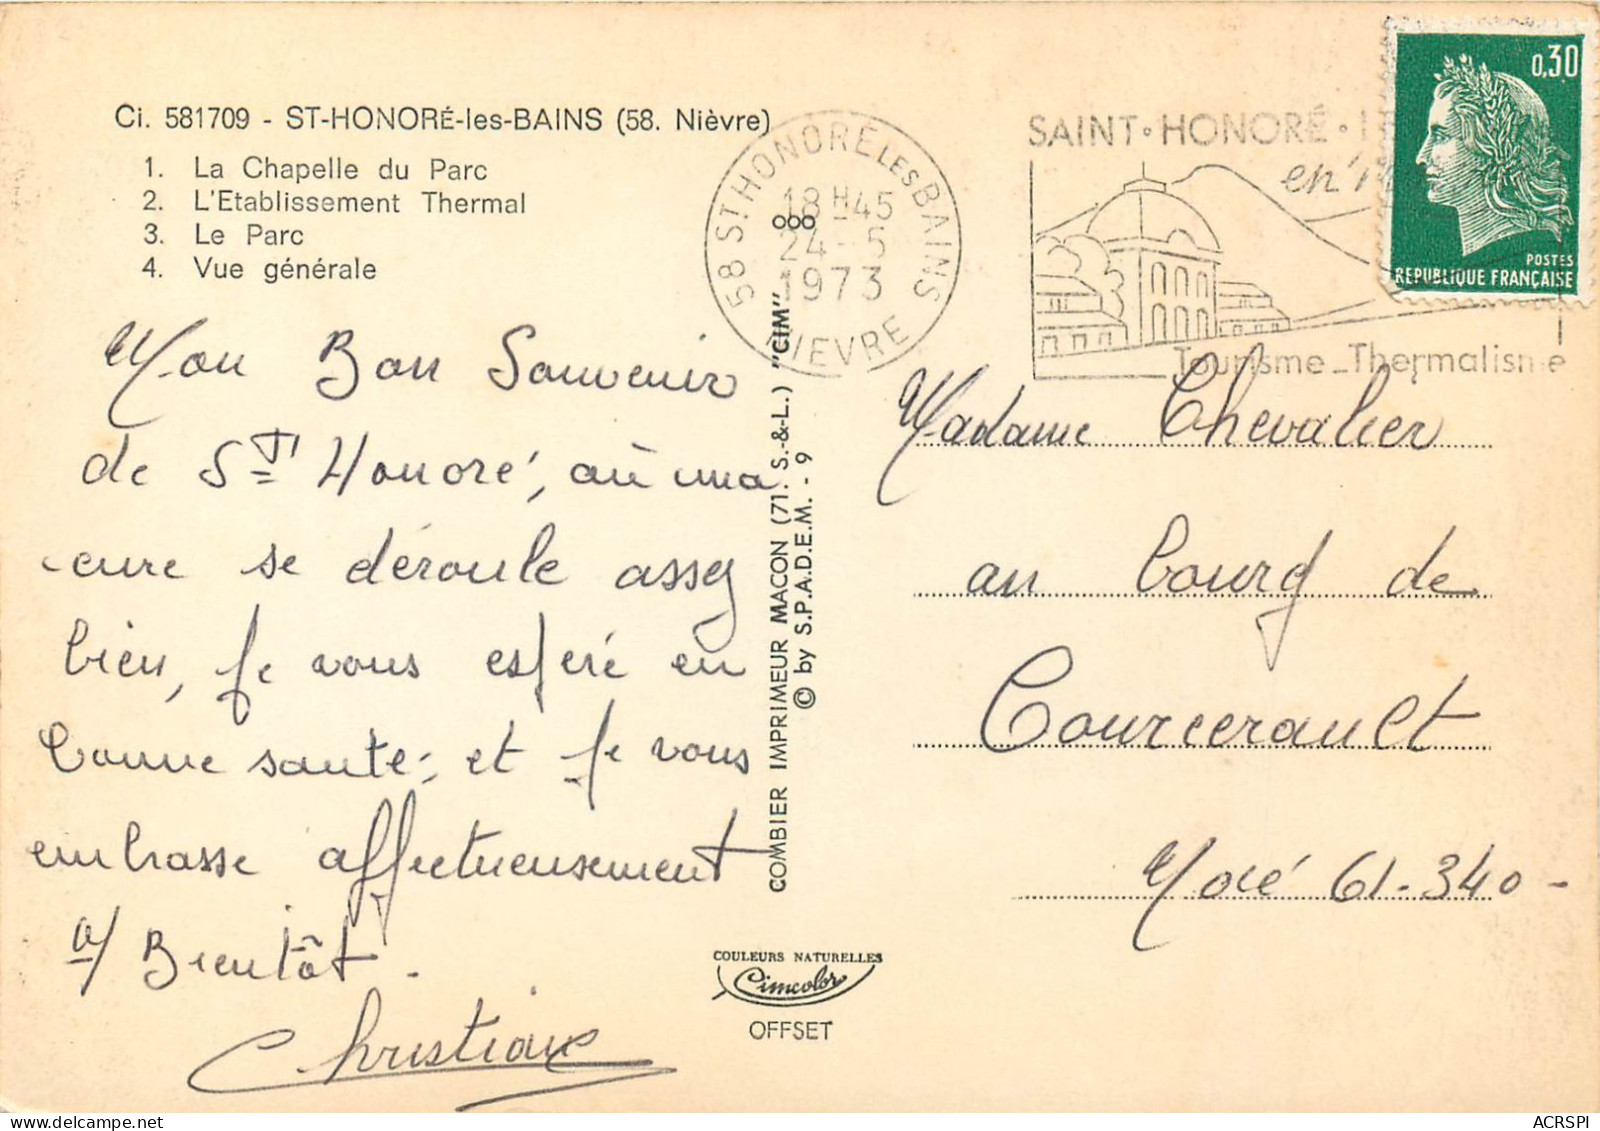 Ci. 581709 - ST-HONORÉ-les-BAINS (58. Nièvre)
1. La Chapelle du Parc
2. L'Etablissement Thermal
3. Le Parc
4. Vue générale
Mon Bon Souvenir
de St Honoré, où ma
cure se déroule assez
bien, je vous espère en
bonne santé, et je vous
embrasse affectueusement
a/ Bientôt.
Christiane
58 ST HONORÉ LES BAINS
18H45
24-5
1973
NIEVRE
SAINT·HONORÉ·
en
Tourisme - Thermalisme
0,30
POSTES
REPUBLIQUE FRANÇAISE
COMBIER IMPRIMEUR MACON (71. S.-&-L.) "CIM"
© by S.P.A.D.E.M. - 9
Madame Chevalier
au bourg de
Courcerault
Nocé 61-340-
COULEURS NATURELLES
Cimcolor
OFFSET
ACRSPI